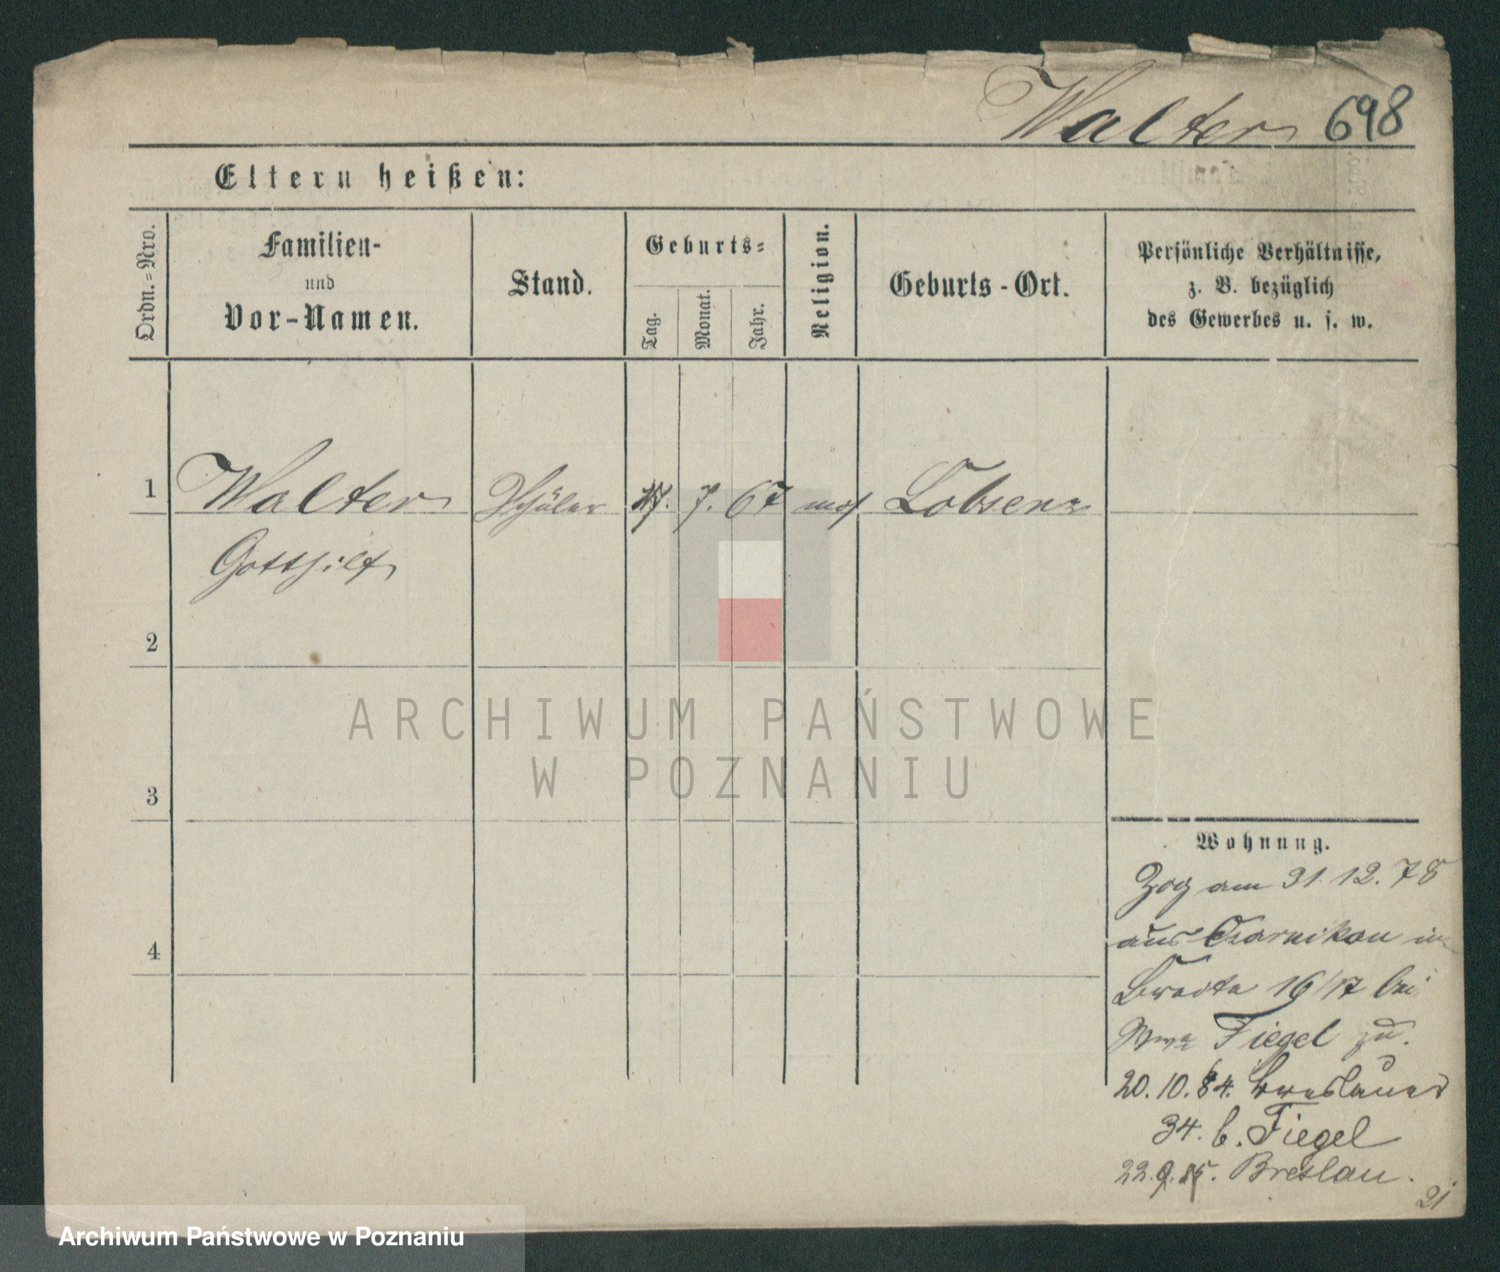 Walter 698
Eltern heißen:
Ordn.=Nro.
Familien-
und
Vor-Namen.
Stand.
Geburts=
Tag.
Monat.
Jahr.
Religion.
Geburts-Ort.
Persönliche Verhältnisse,
z. B. bezüglich
des Gewerbes u. s. w.
1 Walter Schüler 17. 7. 67 mos Lobsenz
Gotthilf
2
3
4
Wohnung.
Zog am 31.12.78
aus Czarnikau in
Breite 16/17 bei
Fiegel zu.
20.10.84. Breslauer
34. b. Fiegel
22.9.85. Breslau.
21
ARCHIWUM PAŃSTWOWE
W POZNANIU
Archiwum Państwowe w Poznaniu